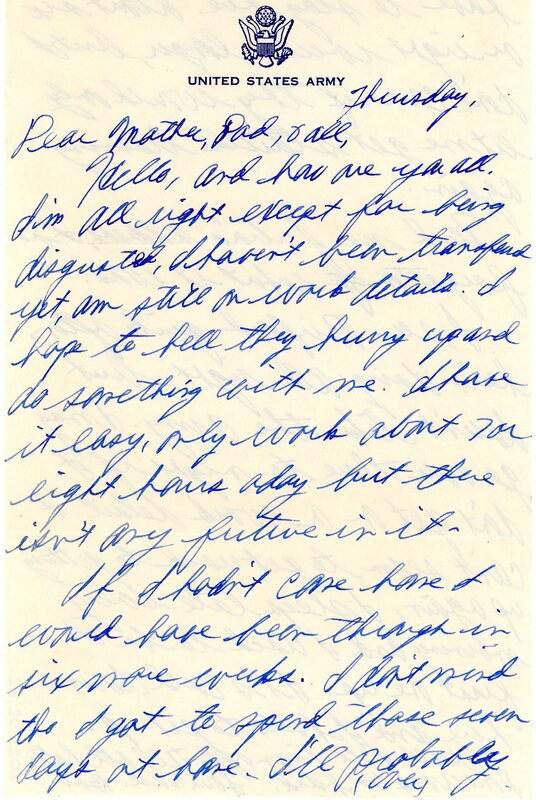 UNITED STATES ARMY
Thursday,
Dear Mother, Dad, & all,
Hello, and how are you all.
I'm all right except for being
disgusted, I haven't been transferred
yet, am still on work details. I
hope to hell they hurry up and
do something with me. I have
it easy, only work about 7 or
eight hours a day but there
isn't any future in it.
If I hadn't come home I
would have been through in
six more weeks. I don't mind
tho I got to spend those seven
days at home. I'll probably
(over)